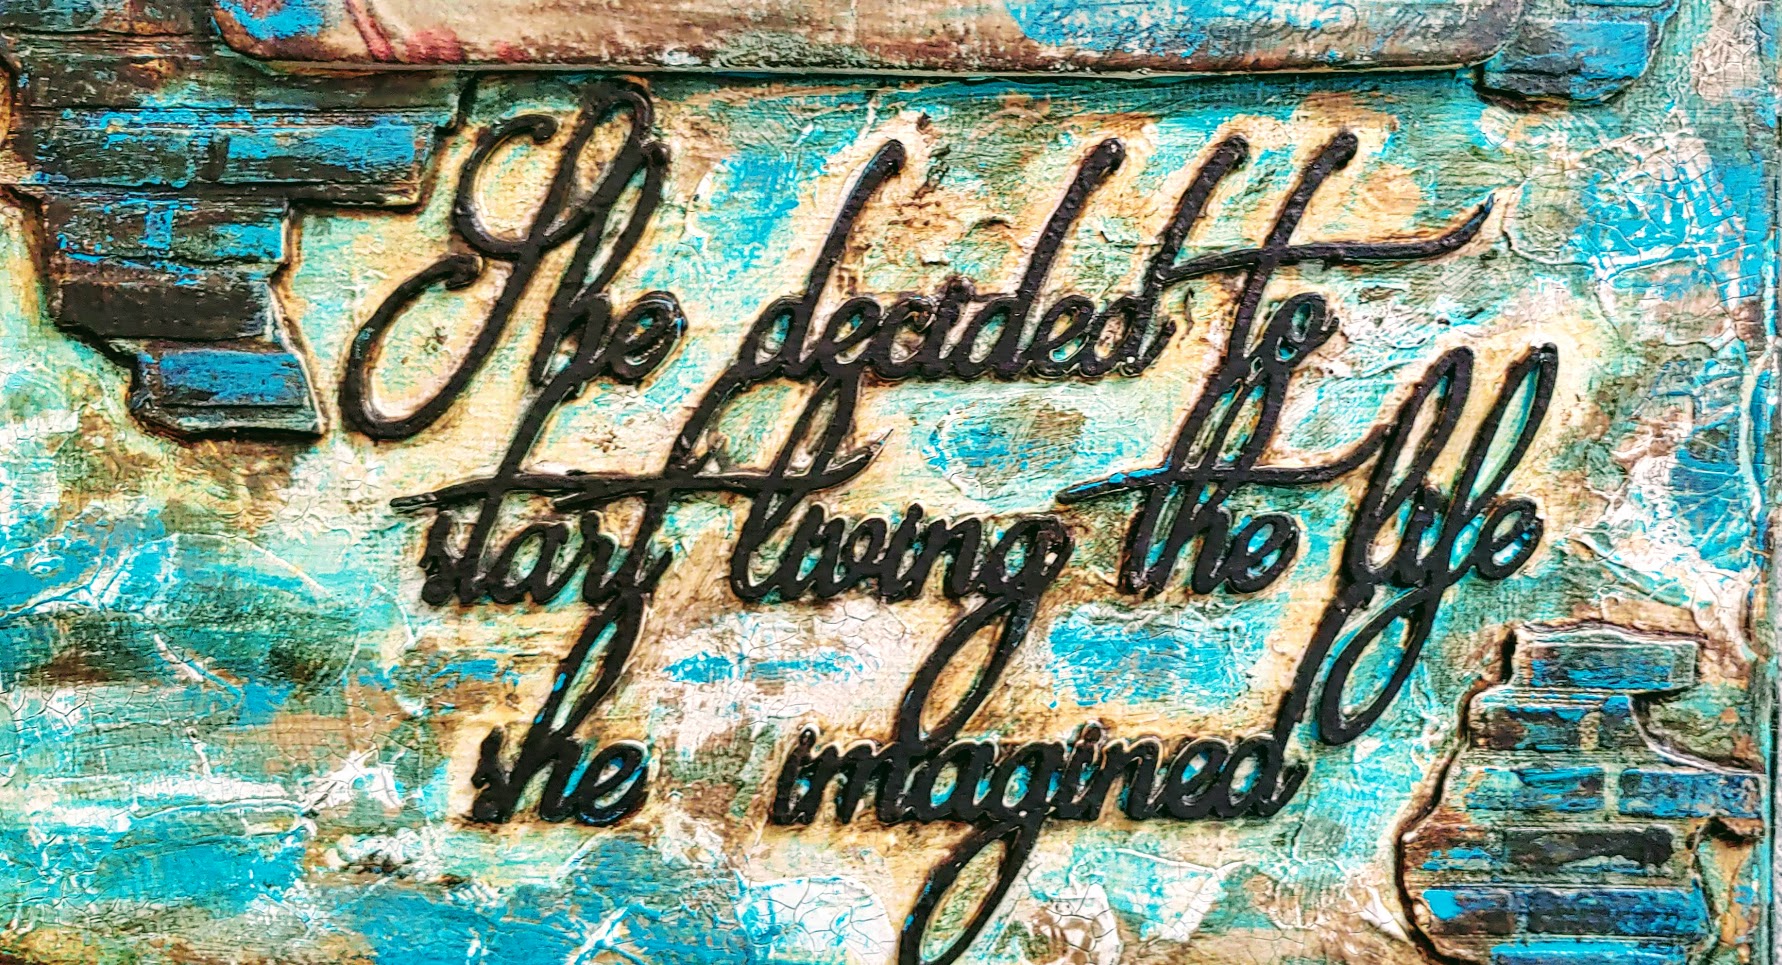 She decided to
start living the life
she imagined